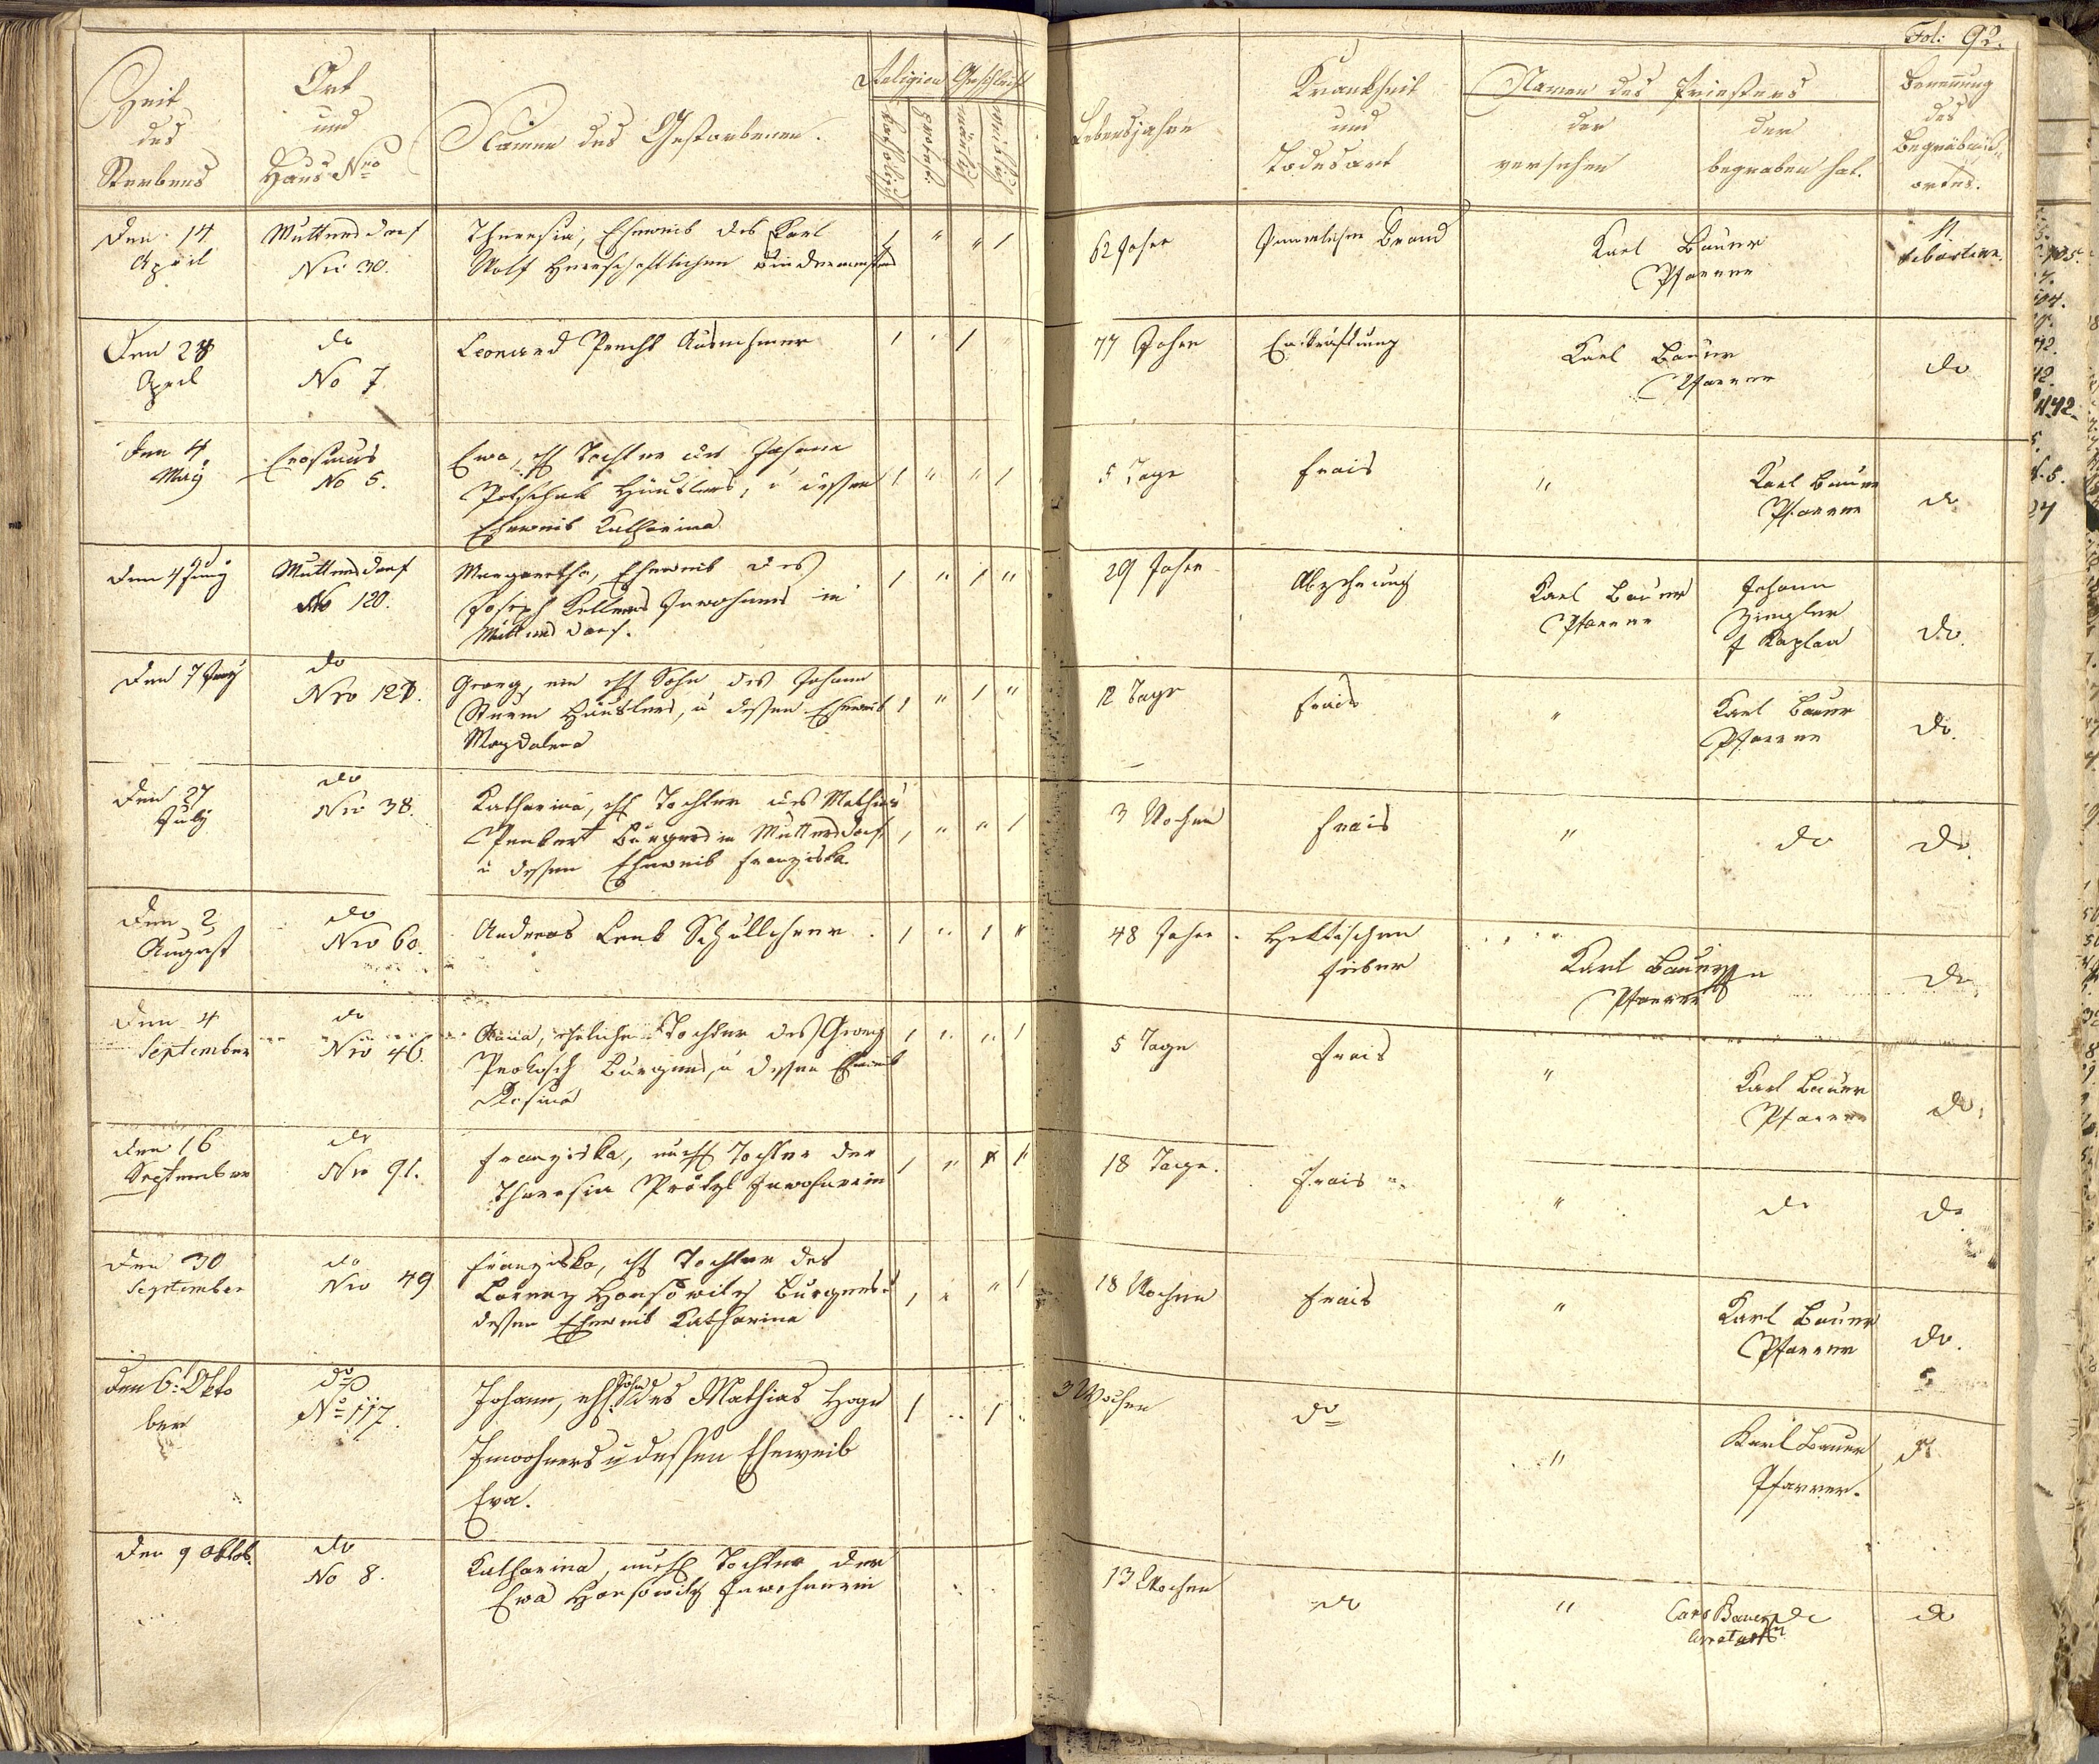 Fol: 92.
Zeit des Sterbens
Ort und Haus Nro
Namen des Gestorbenen.
Religion
Geschlecht
katholisch
protest:
mänlich
weiblich
Lebensjahre
Krankheit und Todesart
Namen des Priesters
der versehen
der begraben hat.
Benennung des Begräbniß-ortes.
Den 14 April
Muttersdorf Nro 30.
Theresia, Eheweib des Karl
Wolf Herrschaftlichen
1 " " 1
62 Jahre
Brand
Karl Bauer
Pfarrer
St
Sebastian.
Den 28 April
do
No 7.
Leonard Precht Ausnehmer
1 " 1
77 Jahre
Entkräftung
Karl Bauer
Pfarrer
do
Den 4. May
Erasmus
No 5.
Ewa, ehl Tochter des Johann
Häuslers, u dessen
Eheweib Katharina
1 " " 1
5 Tage
Frais
"
Karl Bauer
Pfarrer
do
Den 4 Juny
Muttersdorf
No 120.
Margaretha, Eheweib des
Joseph Kellners Inwohners in
Muttersdorf.
1 " 1 "
29 Jahre
Abzehrung
Karl Bauer
Pfarrer
Johann
Ziegler
Kaplan
do.
Den 7 Juny
do
Nro 127.
Georg, ein ehl Sohn des Johann
Sturm Häuslers, u dessen Eheweib
Magdalena
1 " 1 "
12 Tage
Frais
"
Karl Bauer
Pfarrer
do.
Den 27 July
do
Nro 38.
Katharina, ehl Tochter des Mathias
Bürgers in Muttersdorf
u dessen Eheweib Franziska
1 " " 1
3 Wochen
Frais
"
do
do.
Den 2 August
do
Nro 60.
Andreas Lenk Schullehrer.
1 " 1 "
48 Jahre
Hektischen
Fieber
Karl Bauer
Pfarrer
do.
Den 4 September
do
Nro 46.
Anna, eheliche Tochter des Georg
Prokosch Bürgers, u dessen Eheweib
Rosina
1 " " 1
5 Tage
Frais
"
Karl Bauer
Pfarrer
do.
Den 16 September
do
Nro 91.
Franziska, unehl Tochter der
Theresia Inwohnerin
1 "
18 Tage.
Frais
"
do
do
Den 30 September
do
Nro 49
Franziska, ehl Tochter des
Lorenz Honsowitz Bürgers u
dessen Eheweib Katharina
1 " " 1
18 Wochen
Frais
"
Karl Bauer
Pfarrer
do.
Den 6: Okto
ber
do
No 117.
Johann, ehl: Sohn des Mathias Hoge
Inwohners u dessen Eheweib
Eva.
1 " 1 "
3 Wochen
do
"
Karl Bauer
Pfarrer.
do
Den 9 Oktob.
do
No 8.
Katharina, unehl Tochter der
Ewa Honsowitz Inwohnerin
13 Wochen
do
"
Carl Bauer
do